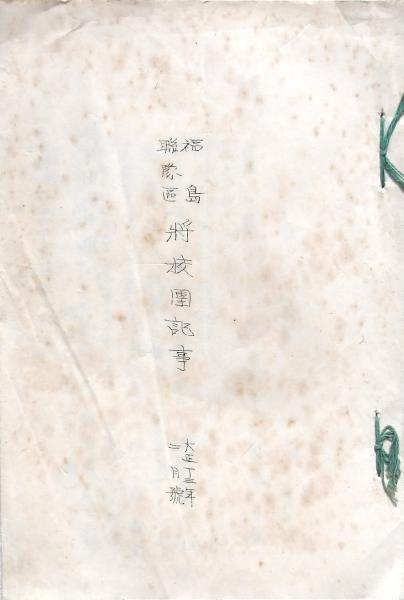 福島
聯隊區
將校團記事
大正十三年
二月號